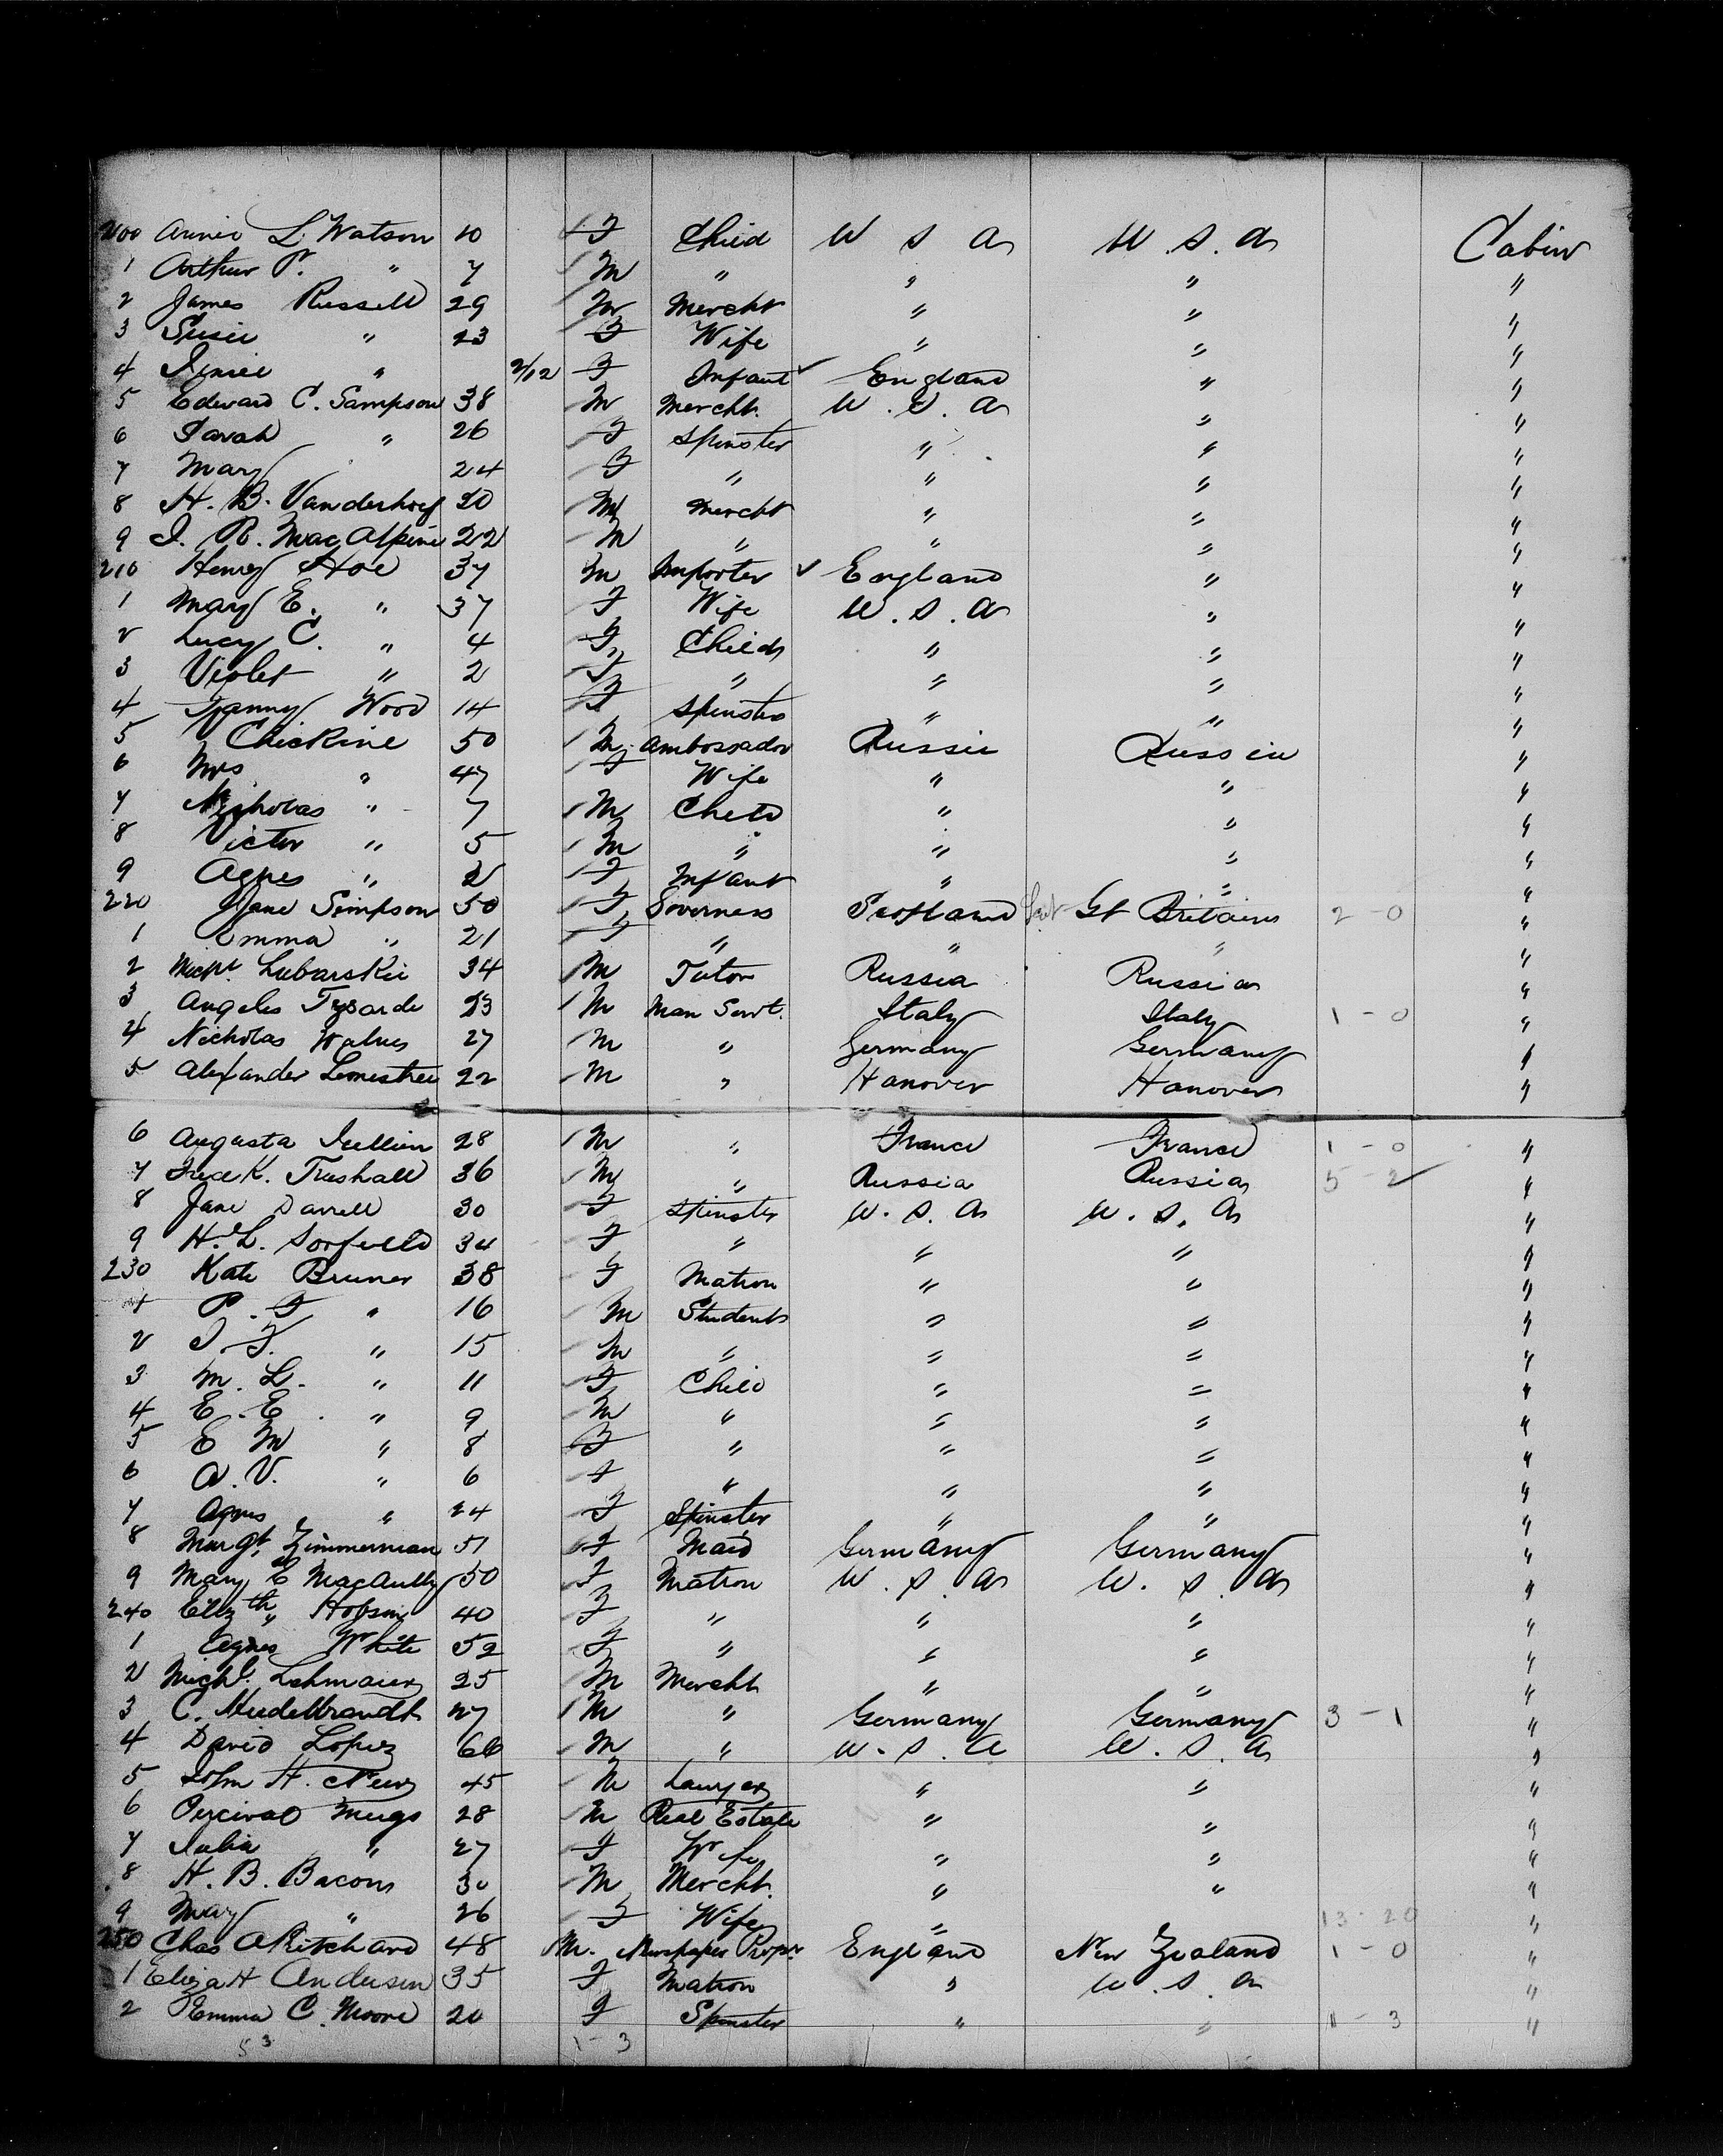 200 Annie L. Watson 10 F Child U S A U. S. A Cabin
1 Arthur P. " 7 M " " " "
2 James Russell 29 M Mercht " " "
3 Susie " 23 F Wife " " "
4 " 2/12 F Infant England " "
5 Edward C. Sampson 38 M Mercht. U. S. A " "
6 Sarah " 26 F Spinster " " "
7 Mary 24 F " " " "
8 H. B. Vanderhoef 20 M Mercht " " "
9 J. R. MacAlpine 22 M " " " "
210 Henry Hoe 37 M Importer England " "
1 Mary E. " 37 F Wife U. S. A " "
2 Lucy C. " 4 F Child " " "
3 Violet " 2 F " " " "
4 Fanny Wood 14 F Spinster " " "
5 Chickine 50 M Ambassador Russia Russia "
6 Mrs " 47 F Wife " " "
7 Nicholas " 7 M Child " " "
8 Victor " 5 M " " " "
9 Agnes " 2 F Infant " " "
220 Jane Simpson 50 F Governess Scotland Gt Britain 2 - 0 "
1 Emma " 21 F " " " "
2 Lubarskie 34 M Tutor Russia Russia "
3 Angelo 23 M Man Servt. Italy Italy 1 - 0 "
4 Nicholas 27 M " Germany Germany "
5 Alexander 22 M " Hanover Hanover "
6 Augusta Jullien 28 M " France France 1 - 0 "
7 Fredk. Trushall 36 M " Russia Russia 5 - 2 "
8 Jane Darrell 30 F Spinster U. S. A U. S. A "
9 H. L. 34 F " " " "
230 Kate Bruner 38 F Matron " " "
1 P. F " 16 M Student " " "
2 J. F. " 15 M " " " "
3 M. L. " 11 F Child " " "
4 E. E. " 9 M " " " "
5 E M " 8 F " " " "
6 A. V. " 6 F " " " "
7 Agnes " 24 F Spinster " " "
8 Margt. Zimmerman 51 F Maid Germany Germany "
9 Mary E MacAully 50 F Matron U. S. A U. S. A "
240 Elizth Hobson 40 F " " " "
1 Agnes White 52 F " " " "
2 Michl. Lehmaier 25 M Mercht " " "
3 C. 27 M " Germany Germany 3 - 1 "
4 David Lopez 60 M " U. S. A U. S. A "
5 John H. 45 M Lawyer " " "
6 Percival 28 M Real Estate " " "
7 Julia " 27 F Wife " " "
8 H. B. Bacon 30 M Mercht. " " "
9 Mary " 26 F Wife " " 13 - 20 "
250 Chas A Ritchard 48 M. Newspaper Propr. England New Zealand 1 - 0 "
1 Eliza H Andersen 35 F Matron " U. S. A "
2 Emma C. Moore 20 F Spinster " " 11 - 3 "
53 1 - 3